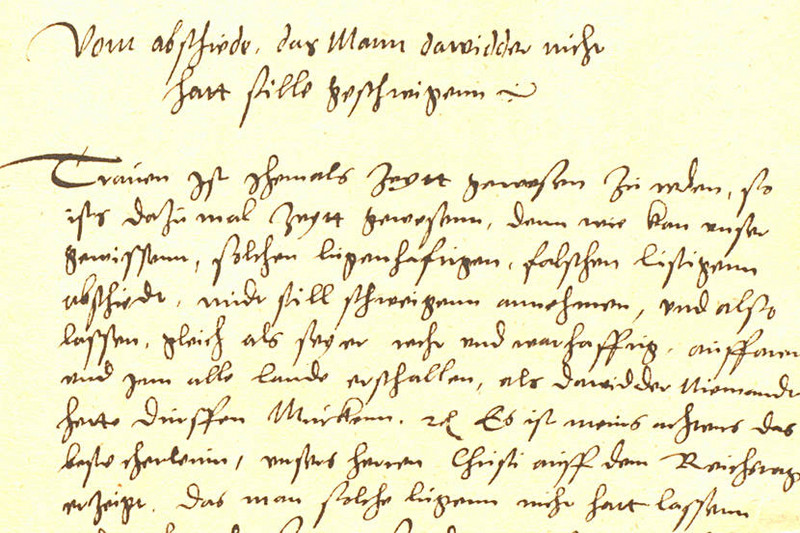 Vom abschiede, das Mann dawidder nicht
hatt stille geschwigenn
Trauen Ist Jhemals Zeytt gewesen zu reden, so
ists dazu mal Zeytt gewesenn, denn wie kan unser
gewissenn, solchen lugenhafftigen, falschen listigenn
abschiedt, mitt still schweigenn annehmen, und also
lassen, gleich als sey er recht und warhafftig, auffaren
und Inn alle lande erschallen, als dawidder Niemandt
hette durffen Mucken. Es ist meins achtens das
beste, unsers herren Christi auff dem Reichstag
erzeigt, das man solche lugenn nicht hatt lassenn